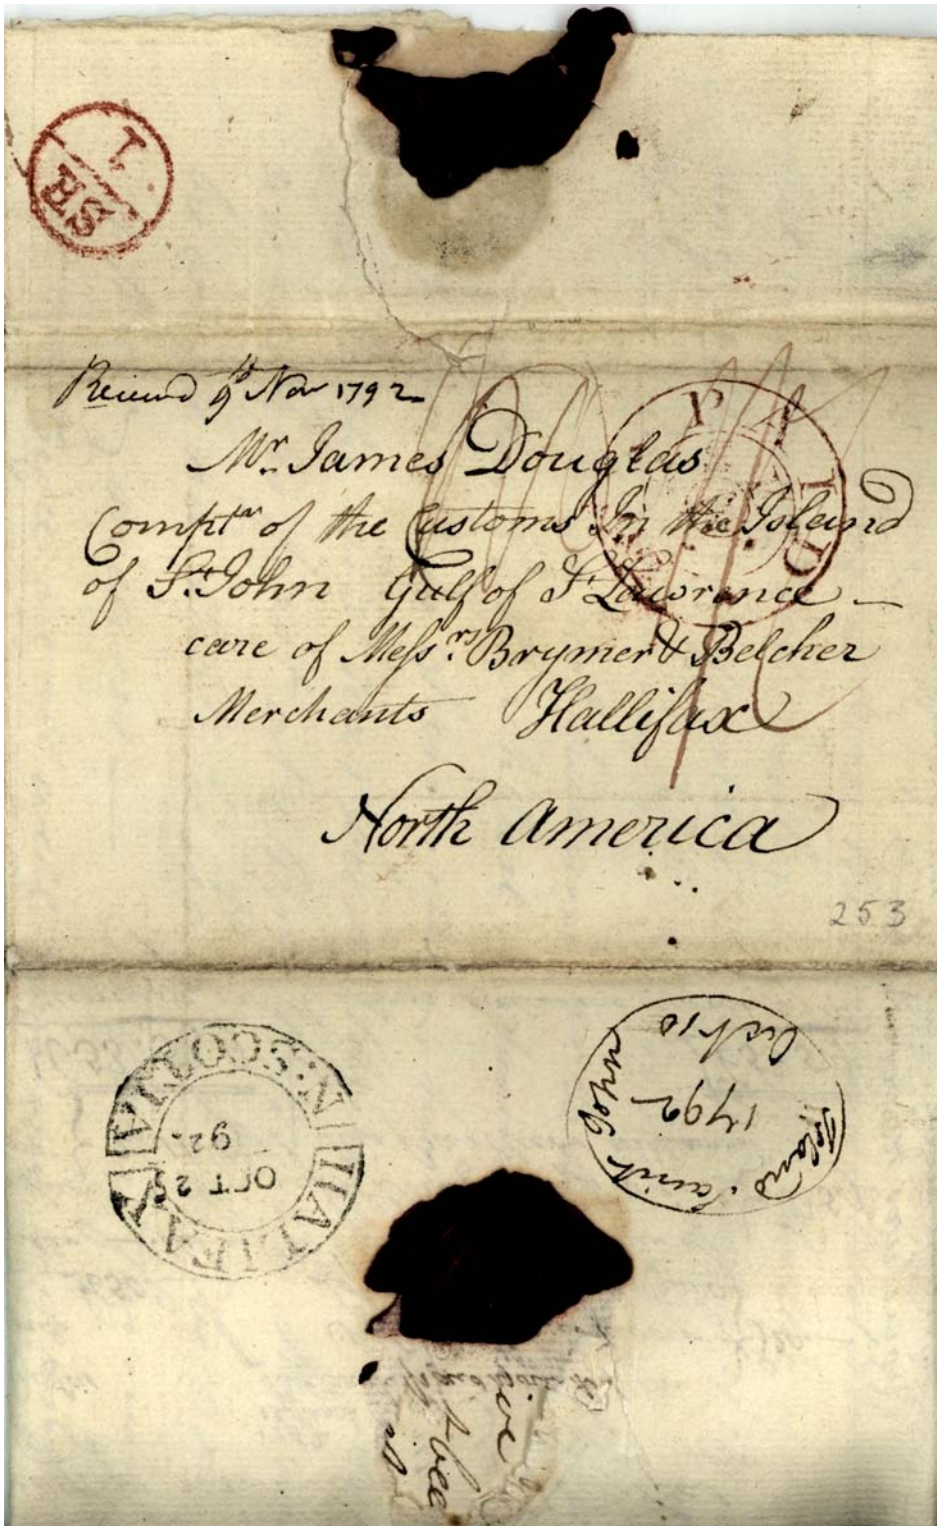 1
SR
Received 9th Nov 1792
PAID
Mr. James Douglas
Comptr of the Customs In the Island
of St. John Gulf of St Lawrence
care of Messrs. Brymer & Belcher
Merchants Hallifax
North America
253
HALIFAX N:SCOTIA
OCT 2
92
Island Saint John
1792
Oct 10